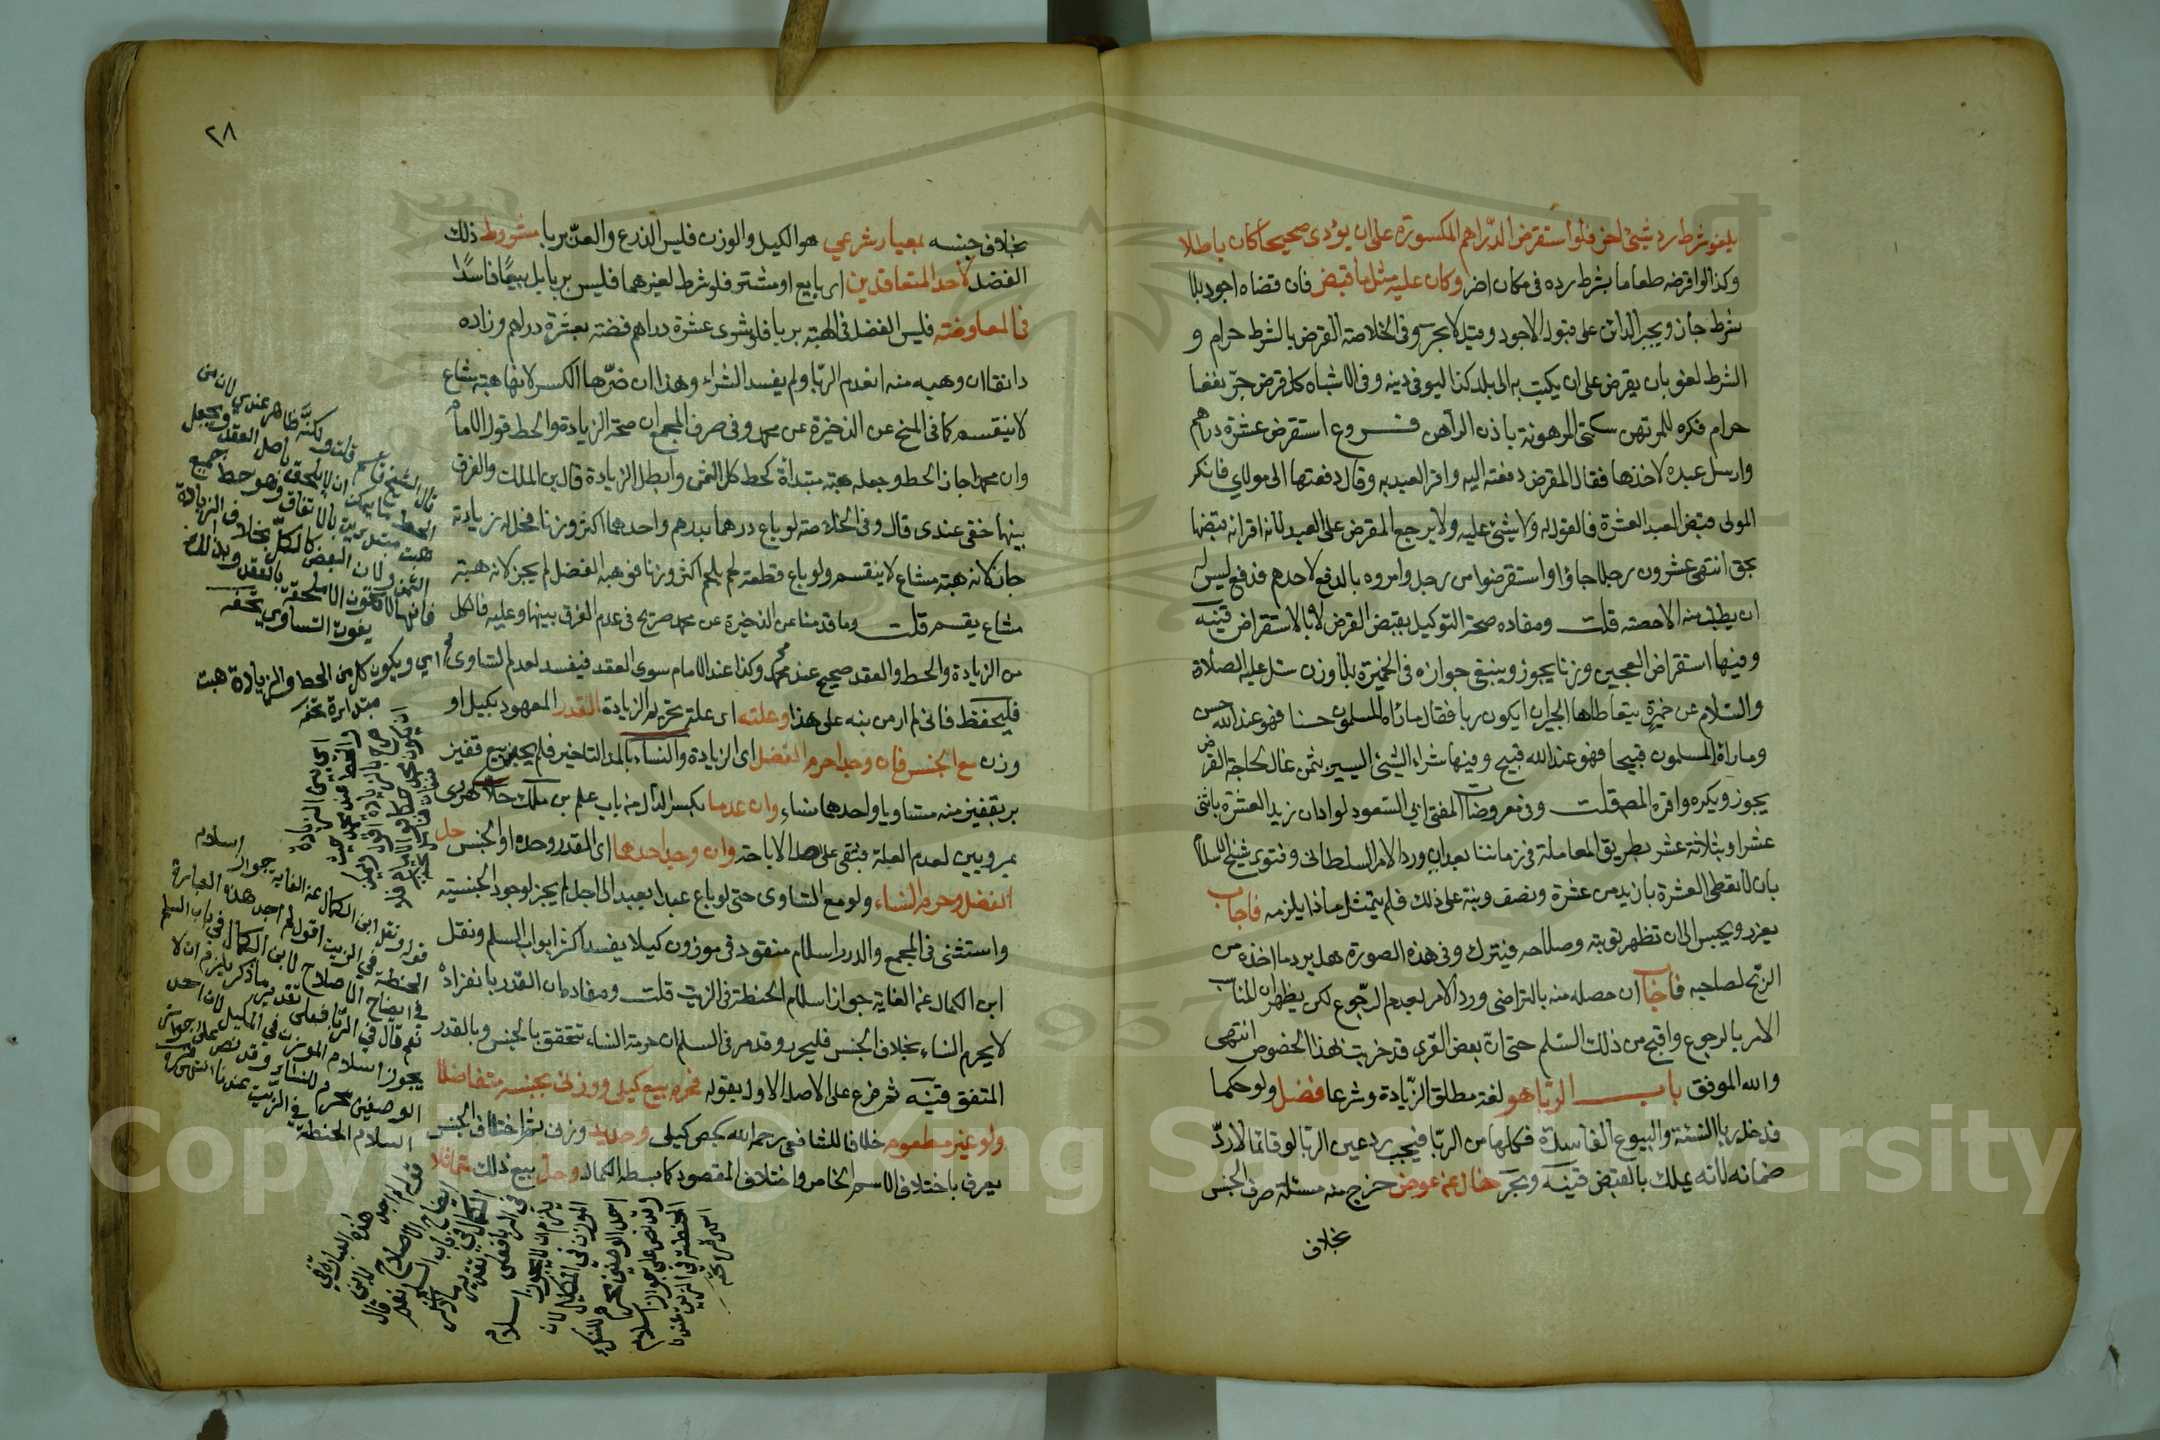 يلغو شرط رد شيئ اخر فلو استقرض الدراهم المكسورة على ان يؤدى صحيحا كان باطلا
وكذا لو اقرضه طعاما بشرط رده فى مكان اخر وكان عليه مثل ما قبض فان قضاه اجود بلا
شرط جاز ويجبر الدائن على قبول الاجود وقيل لا بحر وفى الخلاصة القرض بالشرط حرام و
الشرط لغو بان يقرض على ان يكتب به الى بلد كذا ليوفى دينه وفى الاشباه كل قرض جر نفعا
حرام فكره للمرتهن سكنى المرهونة باذن الراهن فروع استقرض عشرة دراهم
وارسل عبده لاخذها فقال المقرض دفعته اليه واقر العبد به وقال دفعتها الى مولاي فانكر
المولى قبض العبد العشرة فالقول له ولا شيئ عليه ولا يرجع المقرض على العبد لانه اقر انه قبضها
بحق انتهى عشرون رجلا جاؤا واستقرضوا من رجل وامروه بالدفع لاحدهم فدفع ليس له
ان يطلب منه الا حصته قلت ومفاده صحة التوكيل بقبض القرض لا بالاستقراض قنيه
وفيها استقراض العجين وزنا يجوز وينبغى جوازه فى الخميرة بلا وزن سئل عليه الصلاة
والسلام عن خميرة يتعاطاها الجيران ايكون ربا فقال ما رآه المسلمون حسنا فهو عند الله حسن
وما رآه المسلمون قبيحا فهو عند الله قبيح وفيها شراء الشيئ اليسير بثمن غال لحاجة القرض
يجوز ويكره واقره المص قلت وفى معروضات المفتى ابي السعود لو ادان زيد العشرة باثنى
عشر او بثلاثة عشر بطريق المعاملة فى زماننا بعد ان ورد الامر السلطانى وفتوى شيخ الاسلام
بان لا تعطى العشرة بازيد من عشرة ونصف ونبه على ذلك فلم يمتثل ماذا يلزمه فاجاب
يعزر ويحبس الى ان تظهر توبته وصلاحه فيترك وفى هذه الصورة هل يرد ما اخذه من
الربح لصاحبه فاجاب ان حصله منه بالتراضى ورد الامر بعدم الرجوع لكن يظهر ان المناسب
الامر بالرجوع واقبح من ذلك السلم حتى ان بعض القرى قد خربت بهذا الخصوص انتهى
والله الموفق باب الربا هو لغة مطلق الزيادة وشرعا فضل ولو حكما
فدخل ربا النسئة والبيوع الفاسدة فكلها من الربا فيجب رد عين الربا لو قائما لا رد
ضمانه لانه يملك بالقبض قنيه وبحر خال عن عوض خرج منه مسئلة صرف الجنس
بخلاف
٢٨
بخلاف جنسه بمعيار شرعي هو الكيل والوزن فليس الذرع والعد بربا مشروط ذلك
الفضل لاحد المتعاقدين اى بايع او مشتر فلو شرط لغيرهما فليس بربا بل بيعا فاسدا
فى المعاوضة فليس الفضل فى الهبة بربا فلو شرى عشرة دراهم فضة بعشرة دراهم وزاده
دانقا ان وهبه منه انعدم الربا ولم يفسد الشراء وهذا ان ضرها الكسر لانها هبة مشاع
لا ينقسم كما فى المنح عن الذخيرة عن محمد وفى صرف المجمع ان صحة الزيادة والحط قول الامام
وان محمدا جاز الحط وجعله هبة مبتدأة كحط كل الثمن وابطل الزيادة قال بن الملك والفرق
بينهما خفى عندى قال وفى الخلاصة لو باع درهما بدرهم واحدهما اكثر وزنا فحلله زيادته
جاز لانه هبة مشاع لا ينقسم ولو باع قطعة لحم بلحم اكثر وزنا فوهبه الفضل لم يجز لانه هبة
مشاع يقسم قلت وما قدمنا عن الذخيرة عن محمد صريح فى عدم الفرق بينهما وعليه فالكل
من الزيادة والحط والعقد صحيح عند محمد وكذا عند الامام سوى العقد فيفسد لعدم التساوى
فليحفظ فانى لم ار من نبه على هذا وعلته اى علة تحريم الزيادة القدر المعهود بكيل او
وزن مع الجنس فان وجدا حرم الفضل اى الزيادة والنساء بالمد التاخير فلم يجز بيع قفيز
بر بقفيز منه متساويا واحدهما نساء وان عدما بكسر الدال من باب علم بن ملك حلا كهروى
بمرويين لعدم العلة فبقى على اصل الاباحة وان وجد احدهما اى القدر وحده او الجنس حل
الفضل وحرم النساء ولو مع التساوى حتى لو باع عبدا بعبد الى اجل لم يجز لوجود الجنسية
واستثنى فى المجمع والدرر اسلام منقود فى موزون كيلا يفسد اكثر ابواب السلم ونقل
ابن الكمال عن الغاية جواز اسلام الحنطة فى الزيت قلت ومفاده ان القدر بانفراده
لا يحرم النساء بخلاف الجنس فليحرر وقد مر فى السلم ان حرمة النساء تتحقق بالجنس وبالقدر
المتفق قنيه ثم فرع على الاصل الاول بقوله فحرم بيع كيلى ووزنى بجنسه متفاضلا
ولو غير مطعوم خلافا للشافعى رحمه الله كجص كيلى وحديد وزنى ثم اختلاف الجنس
يعرف باختلاف الاسم الخاص واختلاف المقصود كما بسطه الكمال وحل بيع ذلك متماثلا
اي ويكون كل من الحط والزيادة هبة
مبتدأة تحفه
قوله ونقل ابن الكمال عن الغاية جواز اسلام
الحنطة في الزيت اقول لم اجد هذه العبارة
في ايضاح الاصلاح لابن الكمال في باب السلم
نعم قال في الربا فعلى تقدير ما ذكر يلزم ان لا
يجوز اسلام الموزون في المكيل لان احد
الوصفين محرم للنساء وقد نص على جواز
السلام الحنطة في الزيت عندنا انتهى